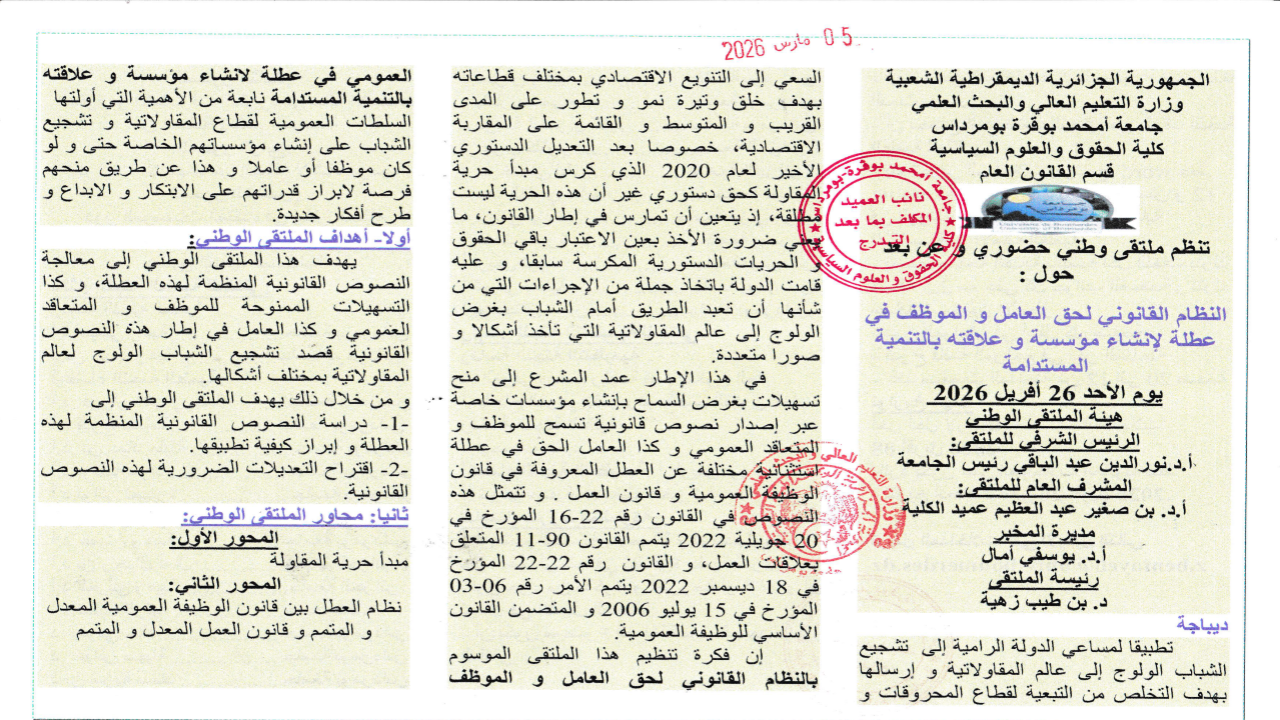 05 مارس 2026
الجمهورية الجزائرية الديمقراطية الشعبية
وزارة التعليم العالي والبحث العلمي
جامعة أمحمد بوقرة بومرداس
كلية الحقوق والعلوم السياسية
قسم القانون العام
جامعة أمحمد بوقرة - بومرداس
كلية الحقوق و العلوم السياسية
نائب العميد
المكلف بما بعد
التدرج
جامعة
بومرداس
تنظم ملتقى وطني حضوري و عن بعد
حول :
النظام القانوني لحق العامل و الموظف في
عطلة لإنشاء مؤسسة و علاقته بالتنمية
المستدامة
يوم الأحد 26 أفريل 2026
هيئة الملتقى الوطني
الرئيس الشرفي للملتقى:
أ.د.نورالدين عبد الباقي رئيس الجامعة
المشرف العام للملتقى:
أ.د. بن صغير عبد العظيم عميد الكلية
مديرة المخبر
أ.د. يوسفي أمال
رئيسة الملتقى
د. بن طيب زهية
ديباجة
تطبيقا لمساعي الدولة الرامية إلى تشجيع
الشباب الولوج إلى عالم المقاولاتية و إرسالها
بهدف التخلص من التبعية لقطاع المحروقات و
السعي إلى التنويع الاقتصادي بمختلف قطاعاته
بهدف خلق وتيرة نمو و تطور على المدى
القريب و المتوسط و القائمة على المقاربة
الاقتصادية، خصوصا بعد التعديل الدستوري
الأخير لعام 2020 الذي كرس مبدأ حرية
المقاولة كحق دستوري غير أن هذه الحرية ليست
مطلقة، إذ يتعين أن تمارس في إطار القانون، ما
يعني ضرورة الأخذ بعين الاعتبار باقي الحقوق
و الحريات الدستورية المكرسة سابقا، و عليه
قامت الدولة باتخاذ جملة من الإجراءات التي من
شأنها أن تعبد الطريق أمام الشباب بغرض
الولوج إلى عالم المقاولاتية التي تأخذ أشكالا و
صورا متعددة.
في هذا الإطار عمد المشرع إلى منح
تسهيلات بغرض السماح بإنشاء مؤسسات خاصة
عبر إصدار نصوص قانونية تسمح للموظف و
المتعاقد العمومي و كذا العامل الحق في عطلة
استثنائية مختلفة عن العطل المعروفة في قانون
الوظيفة العمومية و قانون العمل . و تتمثل هذه
النصوص في القانون رقم 22-16 المؤرخ في
20 جويلية 2022 يتمم القانون 90-11 المتعلق
بعلاقات العمل، و القانون رقم 22-22 المؤرخ
في 18 ديسمبر 2022 يتمم الأمر رقم 06-03
المؤرخ في 15 يوليو 2006 و المتضمن القانون
الأساسي للوظيفة العمومية.
إن فكرة تنظيم هذا الملتقى الموسوم
بالنظام القانوني لحق العامل و الموظف
العمومي في عطلة لانشاء مؤسسة و علاقته
بالتنمية المستدامة نابعة من الأهمية التي أولتها
السلطات العمومية لقطاع المقاولاتية و تشجيع
الشباب على إنشاء مؤسساتهم الخاصة حتى و لو
كان موظفا أو عاملا و هذا عن طريق منحهم
فرصة لابراز قدراتهم على الابتكار و الابداع و
طرح أفكار جديدة.
أولا- أهداف الملتقى الوطني:
يهدف هذا الملتقى الوطني إلى معالجة
النصوص القانونية المنظمة لهذه العطلة، و كذا
التسهيلات الممنوحة للموظف و المتعاقد
العمومي و كذا العامل في إطار هذه النصوص
القانونية قصد تشجيع الشباب الولوج لعالم
المقاولاتية بمختلف أشكالها.
و من خلال ذلك يهدف الملتقى الوطني إلى
-1- دراسة النصوص القانونية المنظمة لهذه
العطلة و إبراز كيفية تطبيقها.
-2- اقتراح التعديلات الضرورية لهذه النصوص
القانونية.
ثانيا: محاور الملتقى الوطني:
المحور الأول:
مبدأ حرية المقاولة
المحور الثاني:
نظام العطل بين قانون الوظيفة العمومية المعدل
و المتمم و قانون العمل المعدل و المتمم